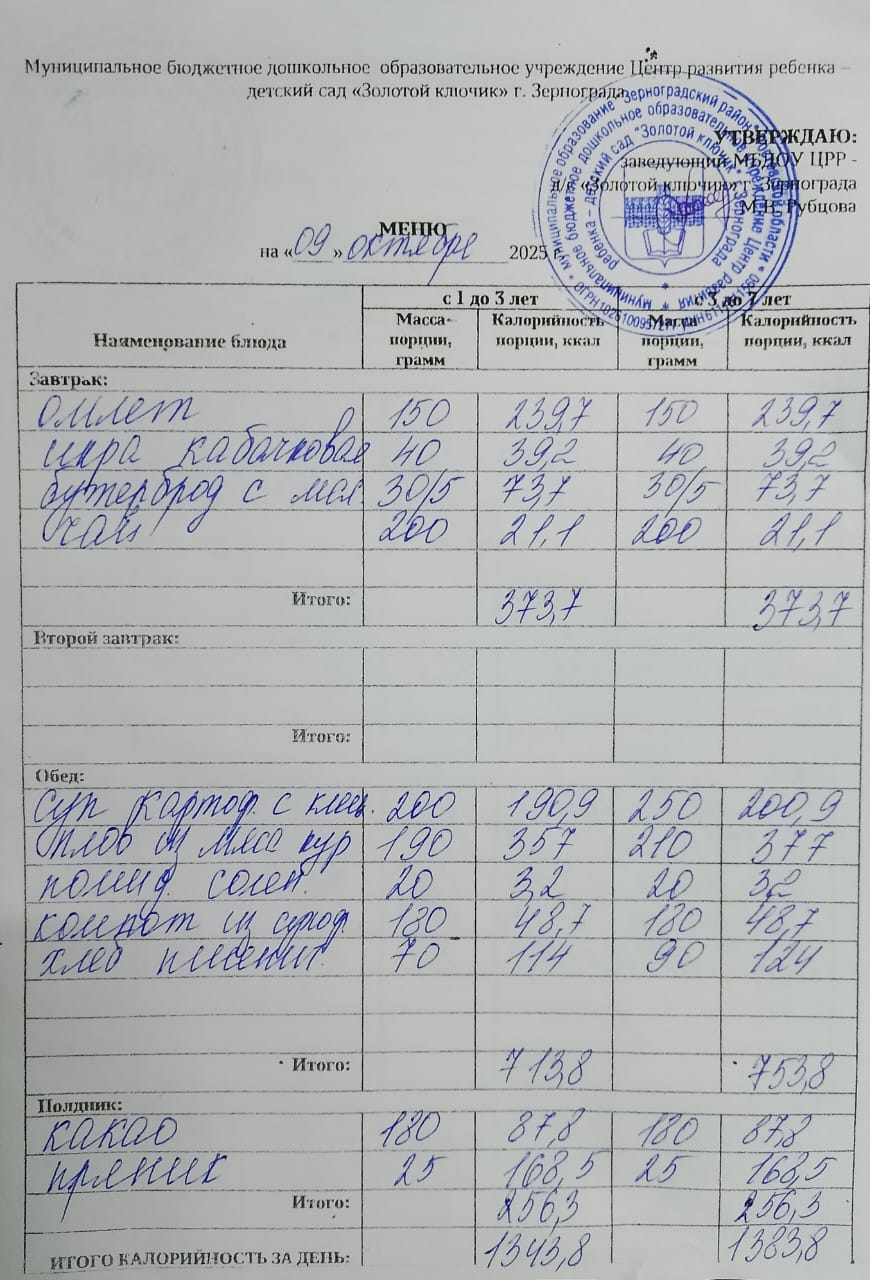 Муниципальное бюджетное дошкольное образовательное учреждение Центр развития ребенка –
детский сад «Золотой ключик» г. Зернограда
УТВЕРЖДАЮ:
заведующий МБДОУ ЦРР -
д/с «Золотой ключик» г. Зернограда
М.В. Рубцова
МЕНЮ
на «09» октября 2025 г.
с 1 до 3 лет с 3 до 7 лет
Наименование блюда Масса порции, грамм Калорийность порции, ккал Масса порции, грамм Калорийность порции, ккал
Завтрак:
омлет 150 239,7 150 239,7
икра кабачковая 40 39,2 40 39,2
бутерброд с мал. 30/5 73,7 30/5 73,7
чай 200 21,1 200 21,1
Итого: 373,7 373,7
Второй завтрак:
Итого:
Обед:
суп картоф. с клец. 200 190,9 250 200,9
плов из мяса кур 190 357 210 377
помид. солен. 20 3,2 20 3,2
компот из сухоф. 180 48,7 180 48,7
хлеб пшенич. 70 114 90 124
Итого: 713,8 753,8
Полдник:
какао 180 87,8 180 87,8
пряник 25 168,5 25 168,5
Итого: 256,3 256,3
ИТОГО КАЛОРИЙНОСТЬ ЗА ДЕНЬ: 1343,8 1383,8